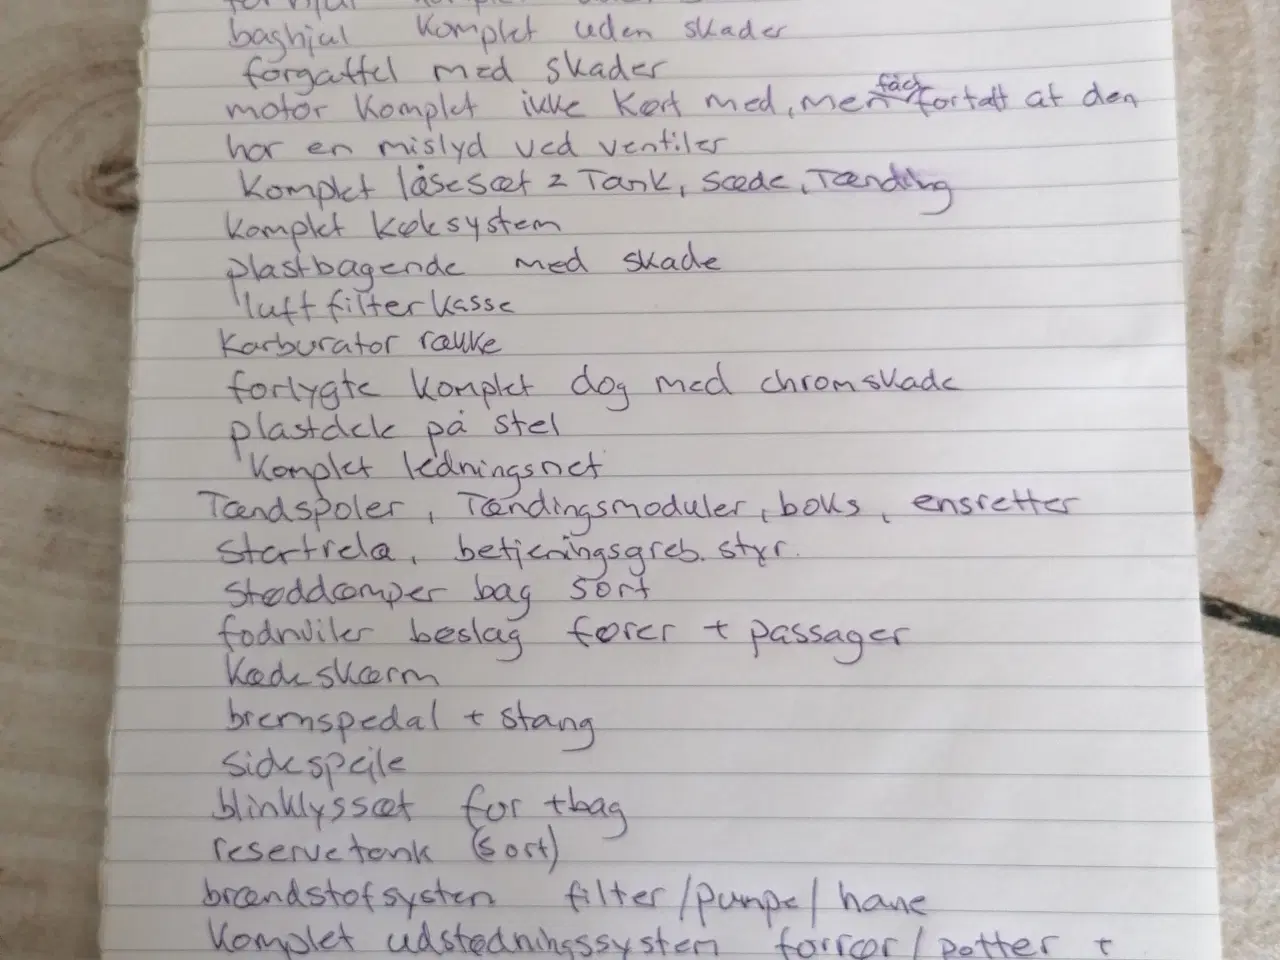 baghjul komplet uden skader
forgaffel med skader
motor komplet ikke kørt med, men fået fortalt at den
har en mislyd ved ventiler
Komplet låsesæt 2 Tank, sæde, Tænding
komplet kølesystem
plastbagende med skade
luftfilterkasse
Karburator række
forlygte komplet dog med chromskade
plastdele på stel
Komplet ledningsnet
Tændspoler, Tændingsmoduler, boks, ensretter
startrelæ, betjeningsgreb. styr.
støddæmper bag sort
fodhviler beslag fører + passager
Kædeskærm
bremspedal + stang
sidespejle
blinklyssæt for + bag
reservetank (sort)
brændstofsystem filter/pumpe/hane
Komplet udstødningssystem forrør/potter +